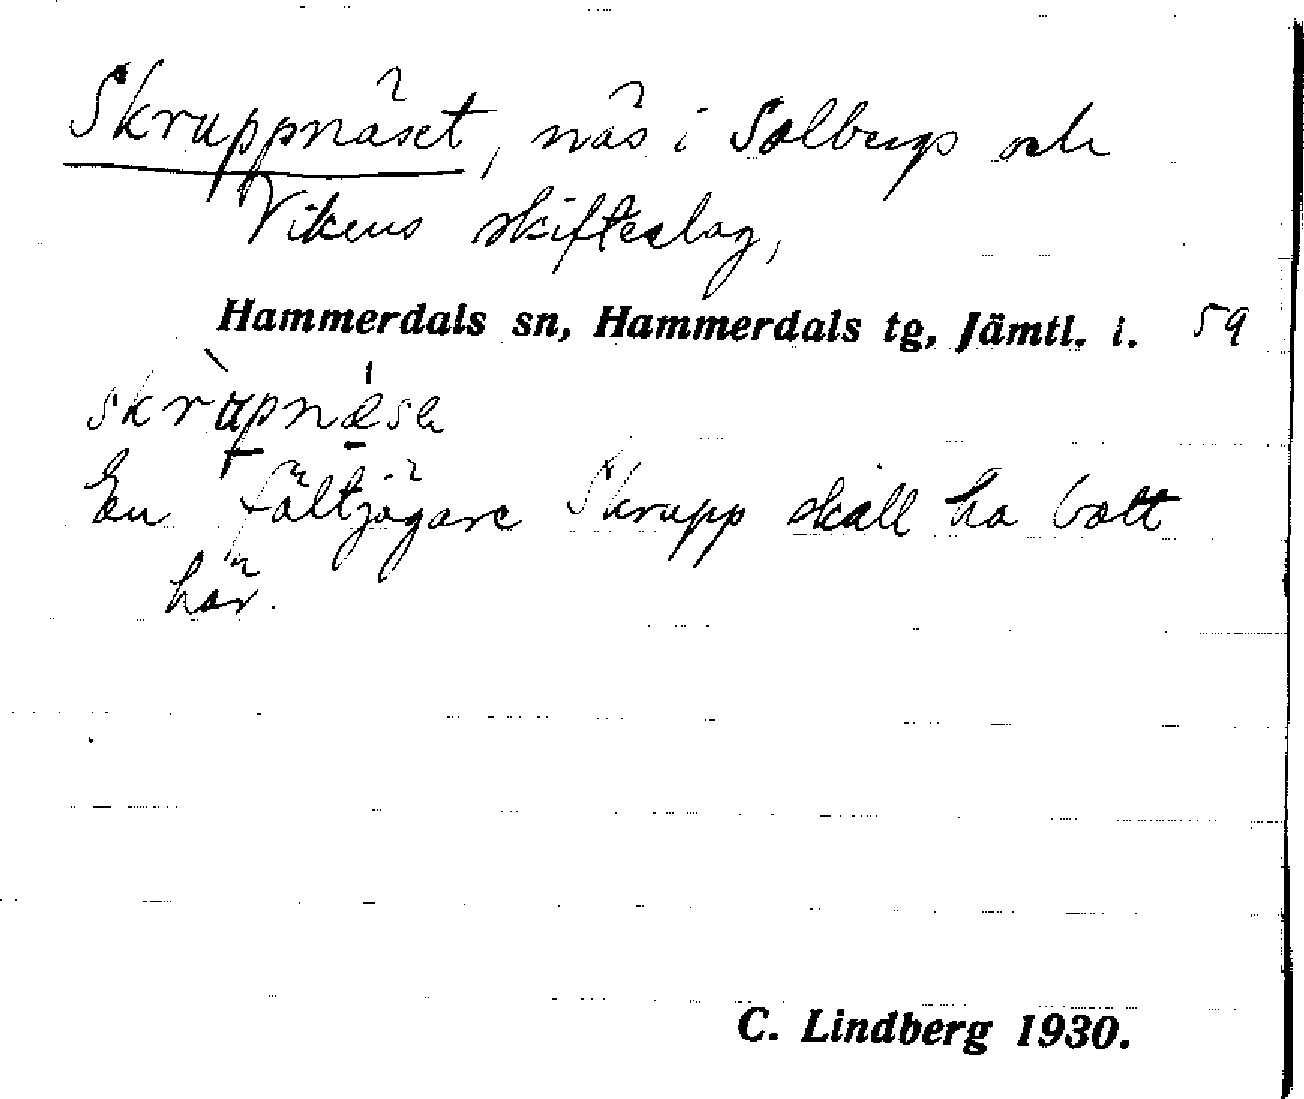 Skruppnäset, näs i Solbergs och
Vikens skifteslag,
Hammerdals sn, Hammerdals tg, Jämtl. l. 59
En fältjägare Skrupp skall ha bott
här.
C. Lindberg 1930.